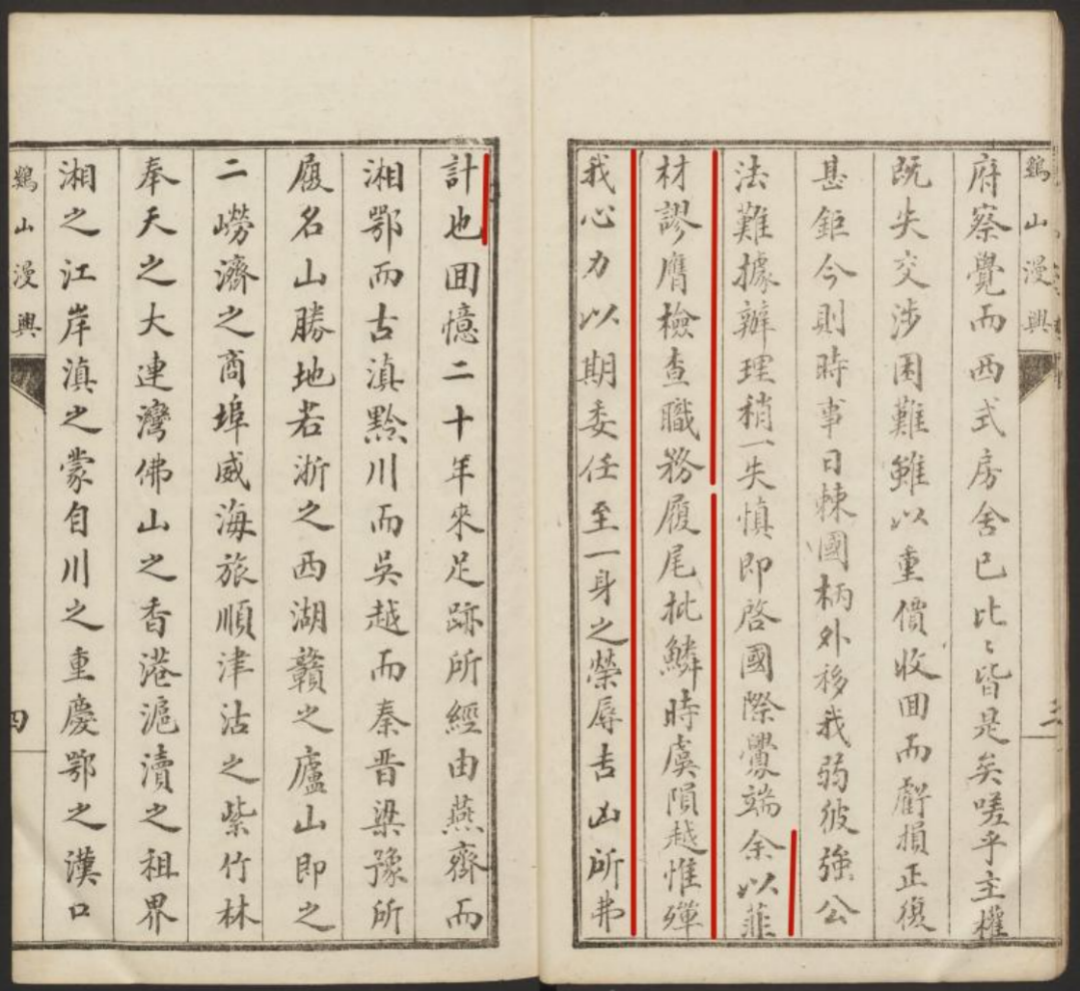 鷄山漫興
三
府察覺而西式房舍已比〻皆是矣嗟乎主權
既失交涉困難雖以重價收囬而虧損正復
甚鉅今則時事日棘國柄外移我弱彼強公
法難據辦理稍一失慎即啓國際釁端余以菲
材謬膺檢查職務履尾批鱗時虞隕越惟殫
我心力以期委任至一身之榮辱吉凶所弗
計也囬憶二十年來足跡所經由燕齊而
湘鄂而古滇黔川而吳越而秦晋梁豫所
履名山勝地若浙之西湖贛之廬山即之
二嶗濟之商埠威海旅順津沽之紫竹林
奉天之大連灣佛山之香港滬瀆之租界
湘之江岸滇之蒙自川之重慶鄂之漢口
鷄山漫興
四